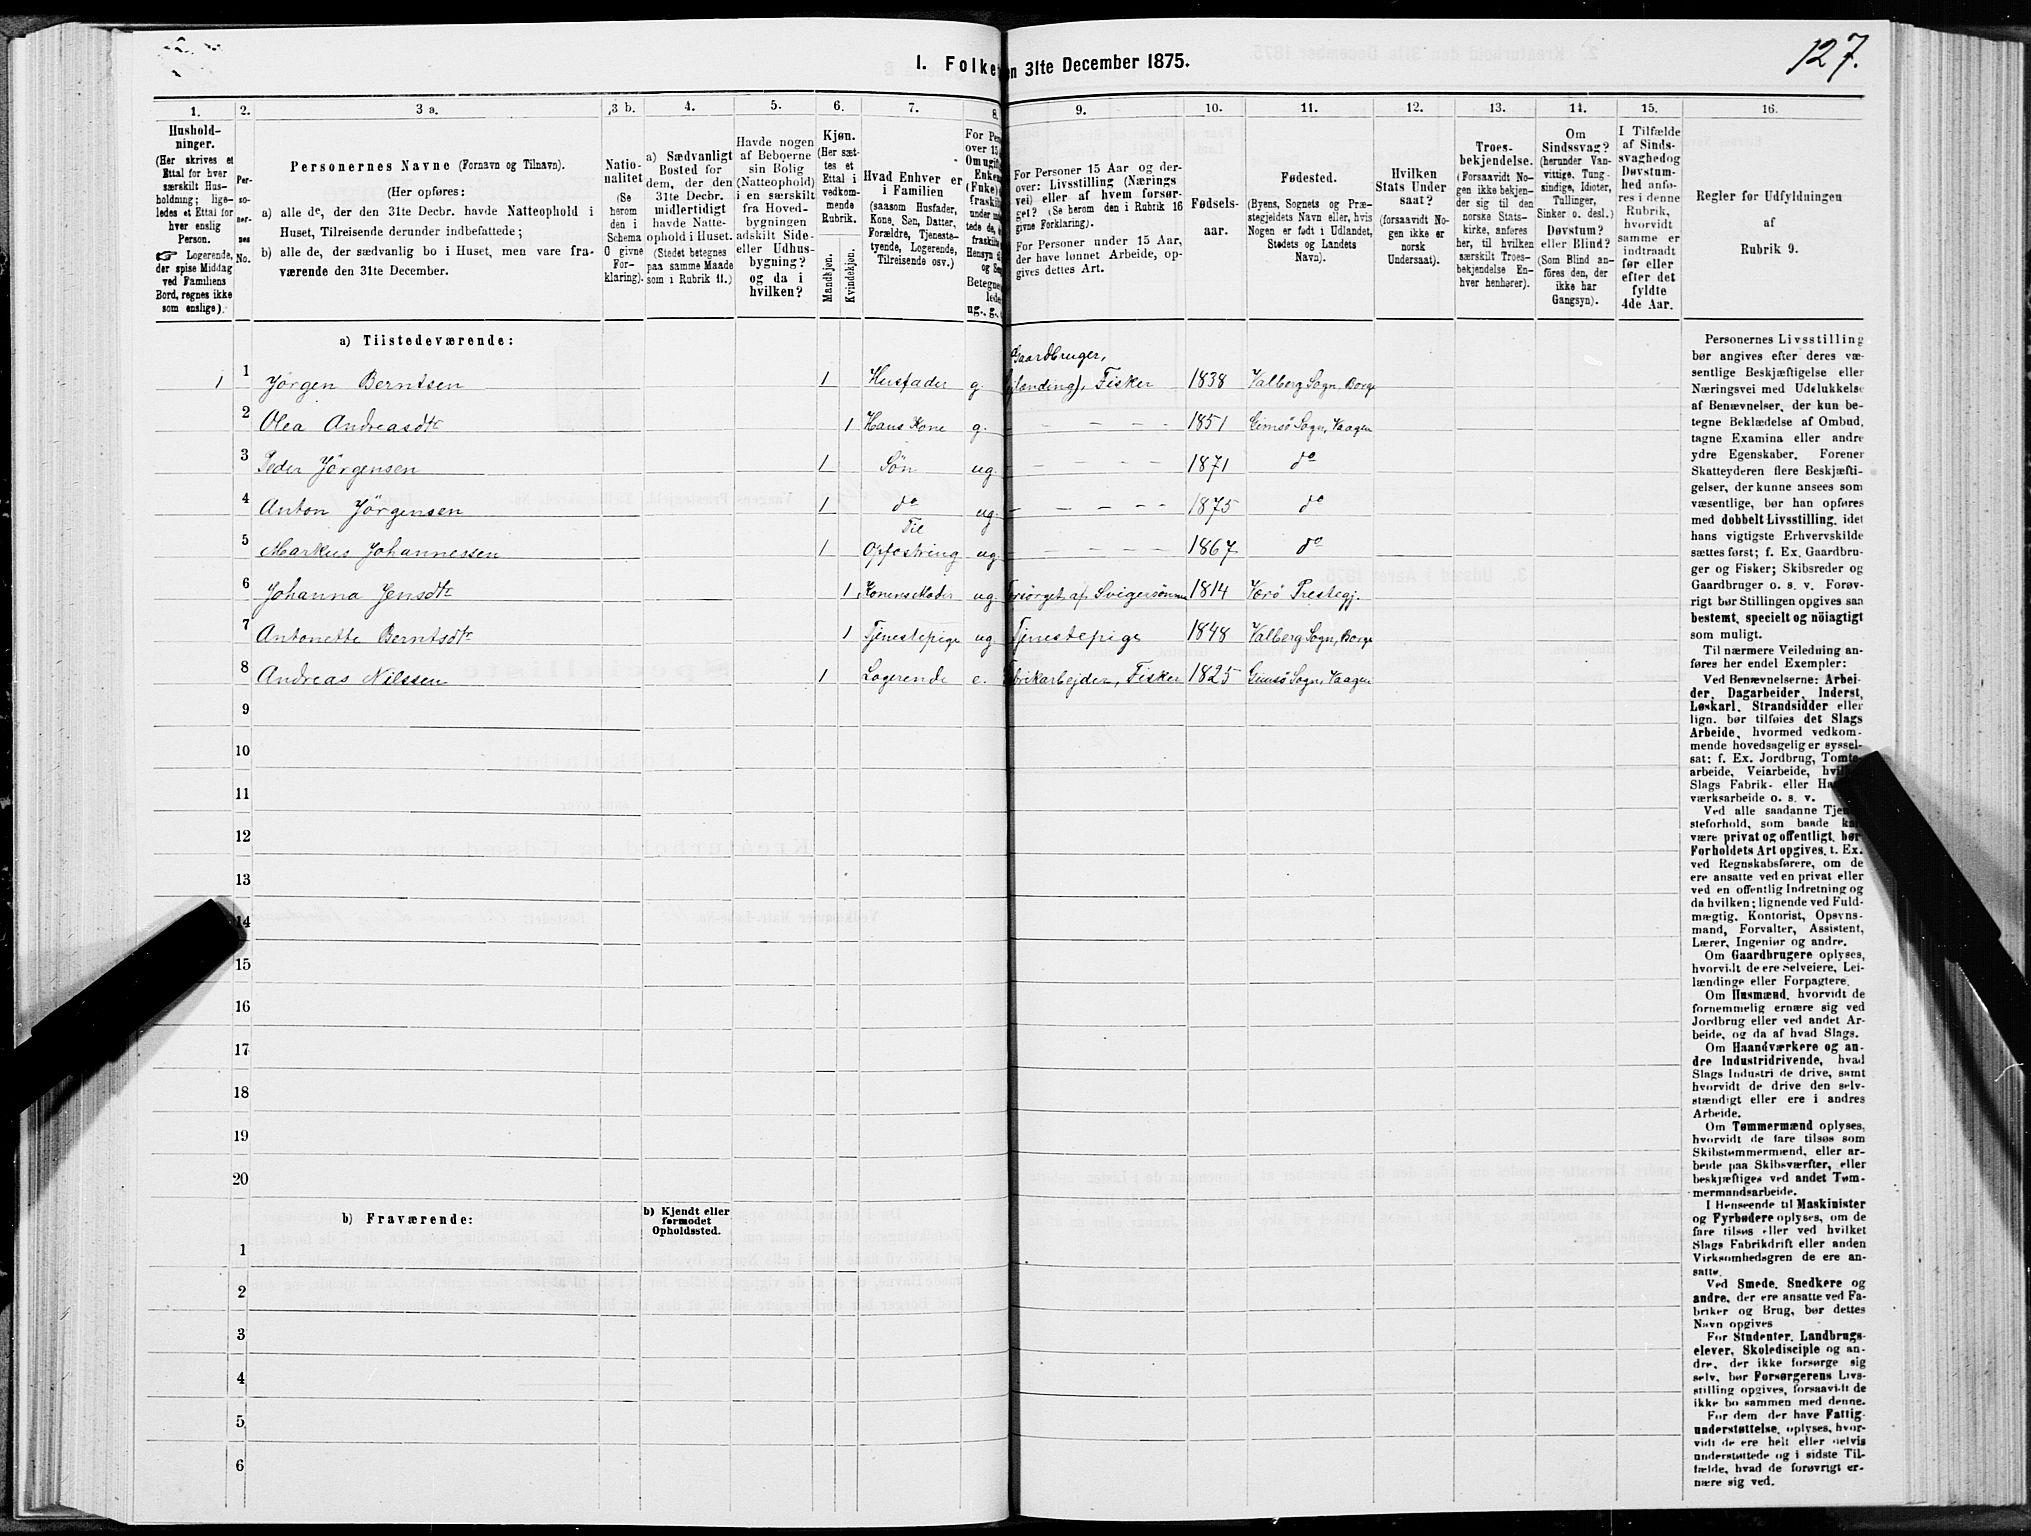 127.
I. Folke
n 31te December 1875.
1. 2. 3 a. 3 b. 4. 5. 6. 7. 8. 9. 10. 11. 12. 13. 14. 15. 16.
Hushold-
ninger.
(Her skrives et
Ettal for hver
særskilt Hus-
holdning; lige-
ledes et Ettal for
hver enslig
Person.
☞ Logerende,
der spise Middag
ved Familiens
Bord, regnes ikke
som enslige).
Per-
so-
ner-
nes
No.
Personernes Navne (Fornavn og Tilnavn).
(Her opføres:
a) alle de, der den 31te Decbr. havde Natteophold i
Huset, Tilreisende derunder indbefattede;
b) alle de, der sædvanlig bo i Huset, men vare fra-
værende den 31te December.
Natio-
nalitet
(Se
herom
den i
Schema
O givne
For-
klaring).
a) Sædvanligt
Bosted for
dem, der den
31te Decbr.
midlertidigt
havde Natte-
ophold i Huset.
(Stedet betegnes
paa samme Maade
som i Rubrik 11.)
Havde nogen
af Beboerne
sin Bolig
(Natteophold)
i en særskilt
fra Hoved-
bygningen
adskilt Side-
eller Udhus-
bygning?
og da i
hvilken?
Kjøn.
(Her sæt-
tes et
Ettal i
vedkom-
mende
Rubrik.
Mandkjøn.
Kvindekjøn.
Hvad Enhver er
i Familien
(saasom Husfader,
Kone, Søn, Datter,
Forældre, Tjenesta-
tyende, Logerende,
Tilreisende osv.)
For Pers
over 15
Om ugift
Enken
(Fnke)
fraskilt
under ind
tede de,
fraskilte
Hensyn
og Se
Betegne
lede
ug., g.,
For Personer 15 Aar og der-
over: Livsstilling (Nærings
vei) eller af hvem forsør-
get? (Se herom den i Rubrik 16
givne Forklaring).
For Personer under 15 Aar,
der have lønnet Arbeide, op-
gives dettes Art.
Fødsels-
aar.
Fødested.
(Byens, Sognets og Præ-
stegjeldets Navn eller, hvis
Nogen er født i Udlandet,
Stedets og Landets
Navn).
Hvilken
Stats Under
saat?
(forsaavidt No-
gen ikke er
norsk
Undersaat).
Troes-
bekjendelse.
(Forsaavidt No-
gen ikke bekjen-
der sig til den
norske Stats-
kirke, anføres
her, til hvilken
særskilt Troes-
bekjendelse En-
hver henhører).
Om
Sindssvag?
(herunder Van-
vittige, Tung-
sindige, Idioter,
Tullinger,
Sinker o. desl.)
Døvstum?
eller Blind?
(Som Blind an-
føres den, der
ikke har
Gangsyn).
I Tilfælde
af Sinds-
svaghed og
Døvstum-
hed anfø-
res i denne
Rubrik,
hvorvidt
samme er
indtraadt
før eller
efter det
fyldte
4de Aar.
Regler for Udfyldningen
af
Rubrik 9.
a) Tilstedeværende:
Gaardbruger,
1 1 Jørgen Berntsen 1 Husfader g. ilænding), Fisker 1838 Valberg Sogn, Borge
2 Olea Andreasdtr 1 Hans Kone g. — — — — 1851 Gimsø Sogn, Vaagen
3 Peder Jørgensen 1 Søn ug. — — — — 1871 do
4 Anton Jørgensen 1 do ug. — — — — 1875 do
5 Markus Johannessen 1 Til Opfostring ug — — — — 1867 do
6 Johanna Jensdtr 1 Konens Moder ug. orsörget af Svigersønnen 1814 Værø Prestegj.
7 Antonette Berntsdtr 1 Tjenestepige ug. Tjenestepige 1848 Valberg Sogn, Borge
8 Andreas Nilssen 1 Logerende e. abrikarbejder, Fisker 1825 Gimsø Sogn, Vaagen
9
10
11
12
13
14
15
16
17
18
19
20
b) Fraværende:
b) Kjendt eller
formodet
Opholdssted.
1
2
3
4
5
6
Personernes Livsstilling
bør angives efter deres væ-
sentlige Beskjæftigelse eller
Næringsvei med Udelukkelse
af Benævnelser, der kun be-
tegne Beklædelse af Ombud,
tagne Examina eller andre
ydre Egenskaber. Forener
Skatteyderen flere Beskjæfti-
gelser, der kunne ansees som
væsentlige, bør han opføres
med dobbelt Livsstilling, idet
hans vigtigste Erhvervskilde
sættes først; f. Ex. Gaardbru-
ger og Fisker; Skibsreder og
Gaardbruger o. s. v. Forøv-
rigt bør Stillingen opgives saa
bestemt, specielt og nöiagtigt
som muligt.
Til nærmere Veiledning an-
føres her endel Exempler:
Ved Benævnelserne: Arbei-
der, Dagarbeider, Inderst,
Løskarl, Strandsidder eller
lign. bør tilføies det Slags
Arbeide, hvormed vedkom-
mende hovedsagelig er syssel-
sat; f. Ex. Jordbrug, Tomte-
arbeide, Veiarbeide, hvil
Slags Fabrik- eller Ha
værksarbeide o. s. v.
Ved alle saadanne Tjen
steforhold, som baade ka
være privat og offentligt, bør
Forholdets Art opgives, t. Ex.
ved Regnskabsførere, om de
ere ansatte ved en privat eller
ved en offentlig Indretning og
da hvilken; lignende ved Fuld-
mægtig, Kontorist, Opsyns-
mand, Forvalter, Assistent,
Lærer, Ingeniør og andre.
Om Gaardbrugere oplyses,
hvorvidt de ere Selveiere, Lei-
lændinge eller Forpagtere.
Om Husmænd, hvorvidt de
fornemmelig ernære sig ved
Jordbrug eller ved andet Ar-
beide, og da af hvad Slags.
Om Haandværkere og an-
dre Industridrivende, hvad
Slags Industri de drive, samt
hvorvidt de drive den selv-
stændigt eller ere i andres
Arbeide.
Om Tømmermænd oplyses,
hvorvidt de fare tilsøs som
Skibstømmermænd, eller ar-
beide paa Skibsværfter, eller
beskjæftiges ved andet Tøm-
mermandsarbeide.
I Henseende til Maskinister
og Fyrbødere oplyses, om de
fare tilsøs eller ved hvilket
Slags Fabrikdrift eller anden
Virksomhedsgren de ere an-
satte.
Ved Smede, Snedkere og
andre, der ere ansatte ved Fa-
briker og Brug, bør dettes
Navn opgives
For Studenter, Landbrugs-
elever, Skoledisciple og an-
dre, der ikke forsørge sig
selv, bør Forsørgerens Livs-
stilling opgives, forsaavidt de
ikke bo sammen med denne.
For dem der have Fattig-
understøttelse, oplyses, hvor-
vidt de ere helt eller delvis
understøttede og i sidste Til-
fælde, hvad de forøvrigt er-
nære sig ved.